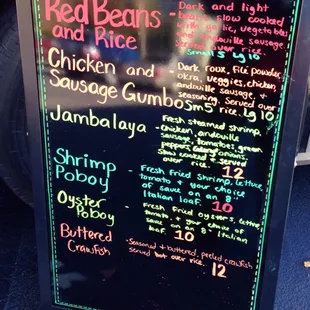 Red Beans
and Rice
Dark and light
slow cooked
garlic, vegetables
andouille sausage
over rice.
Small 5 Lg 10
Chicken and
Sausage Gumbo
- Dark roux, file powder,
okra, veggies, chicken,
andouille sausage, +
seasoning. Served over
Sm 5 rice. Lg 10
Jambalaya -
Fresh steamed shrimp,
Chicken, andouille
sausage, tomatoes, green
peppers, onions,
slow cooked + served
over rice. 12
Shrimp
Poboy
- Fresh Fried shrimp, lettuce,
tomato + your choice
of sauce on an 8"
Italian loaf. 10
Oyster
Poboy
- Fresh Fried oysters, lettuce,
tomato, + your choice
of sauce on an 8" Italian
loaf. 10
Buttered
Crawfish
- Seasoned + buttered, peeled crawfish
served hot over rice. 12